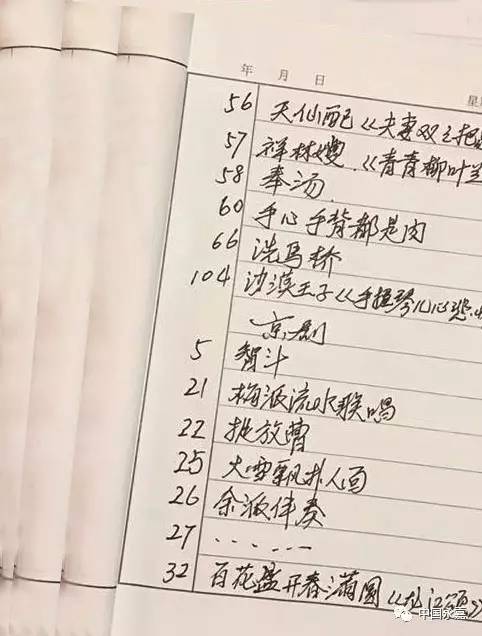 年 月 日 星
56 天仙配《夫妻双双把
57 祥林嫂.《青青柳叶
58 奉汤.
60 手心手背都是肉
66 洗马桥
104 沙漠王子《手搔琴儿心
京剧
5 智斗
21 梅派流水联唱
22 捉放曹
25 大雪飘扑人面
26 余派伴奏
27 ......
32 百花盛开春满园《龙江颂》
中国永嘉